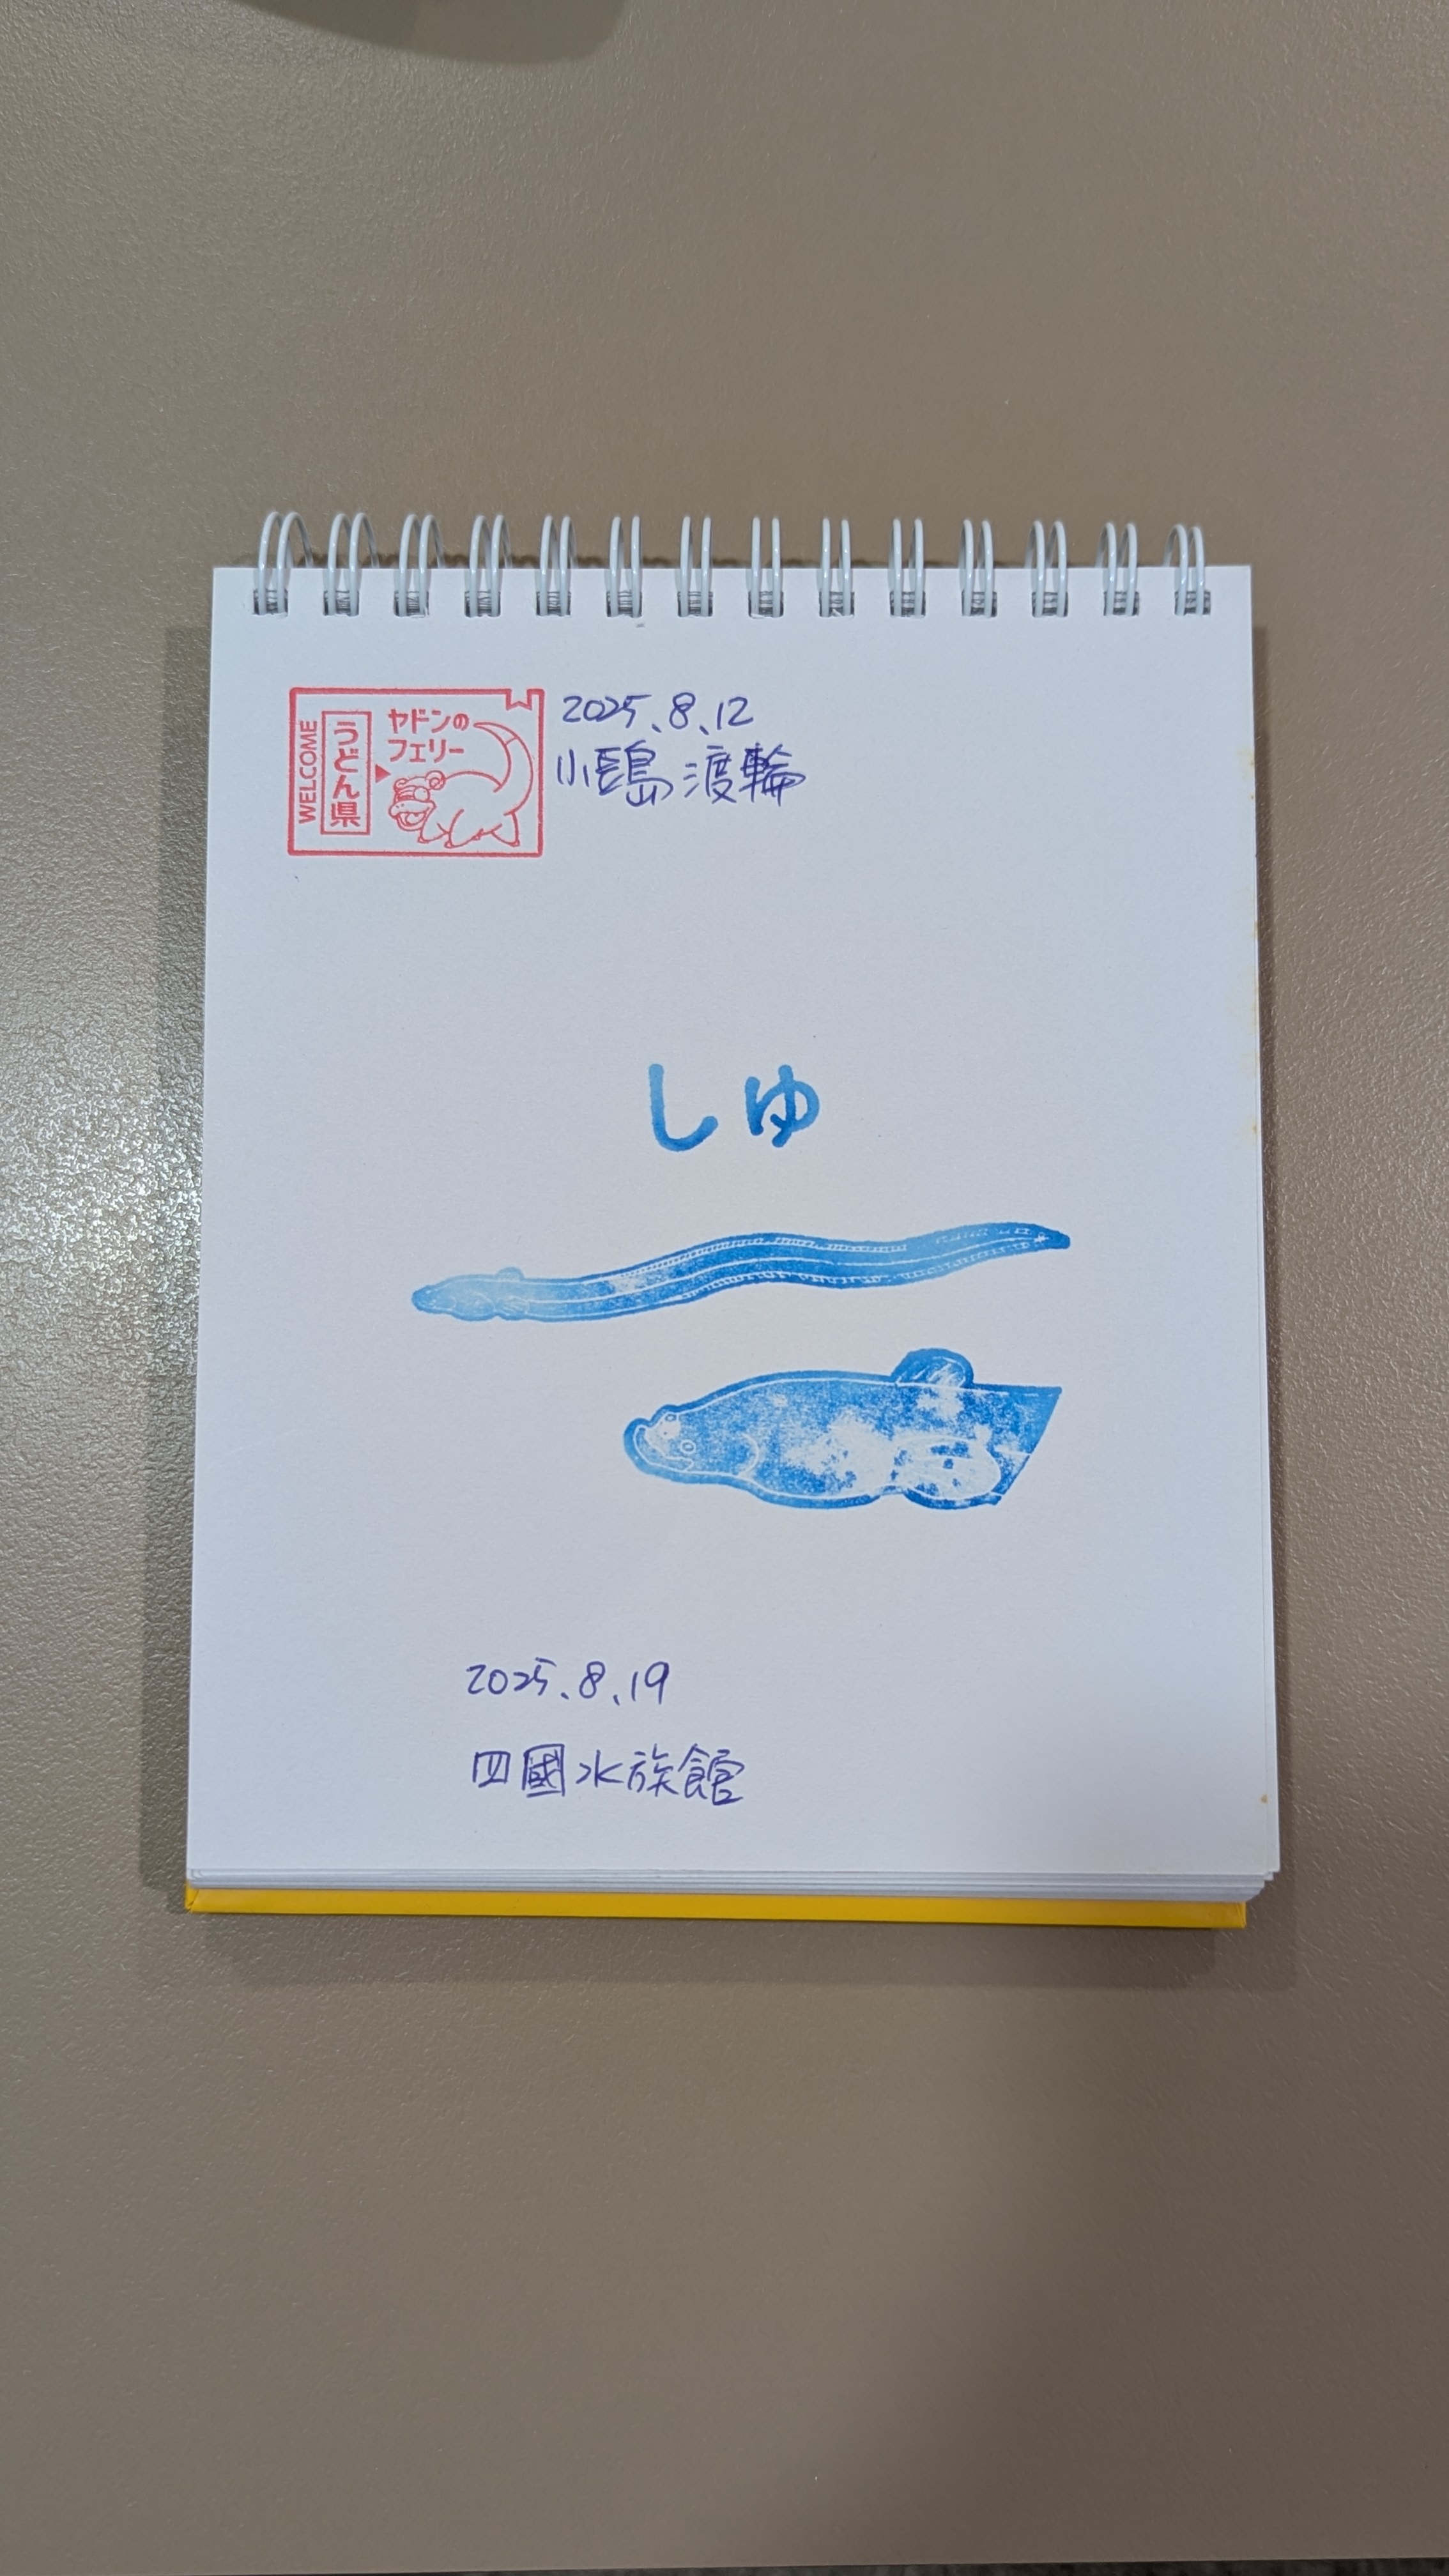 WELCOME
うどん県
ヤドンの
フェリー
2025.8.12
小豆島渡輪
しゅ
2025.8.19
四國水族館